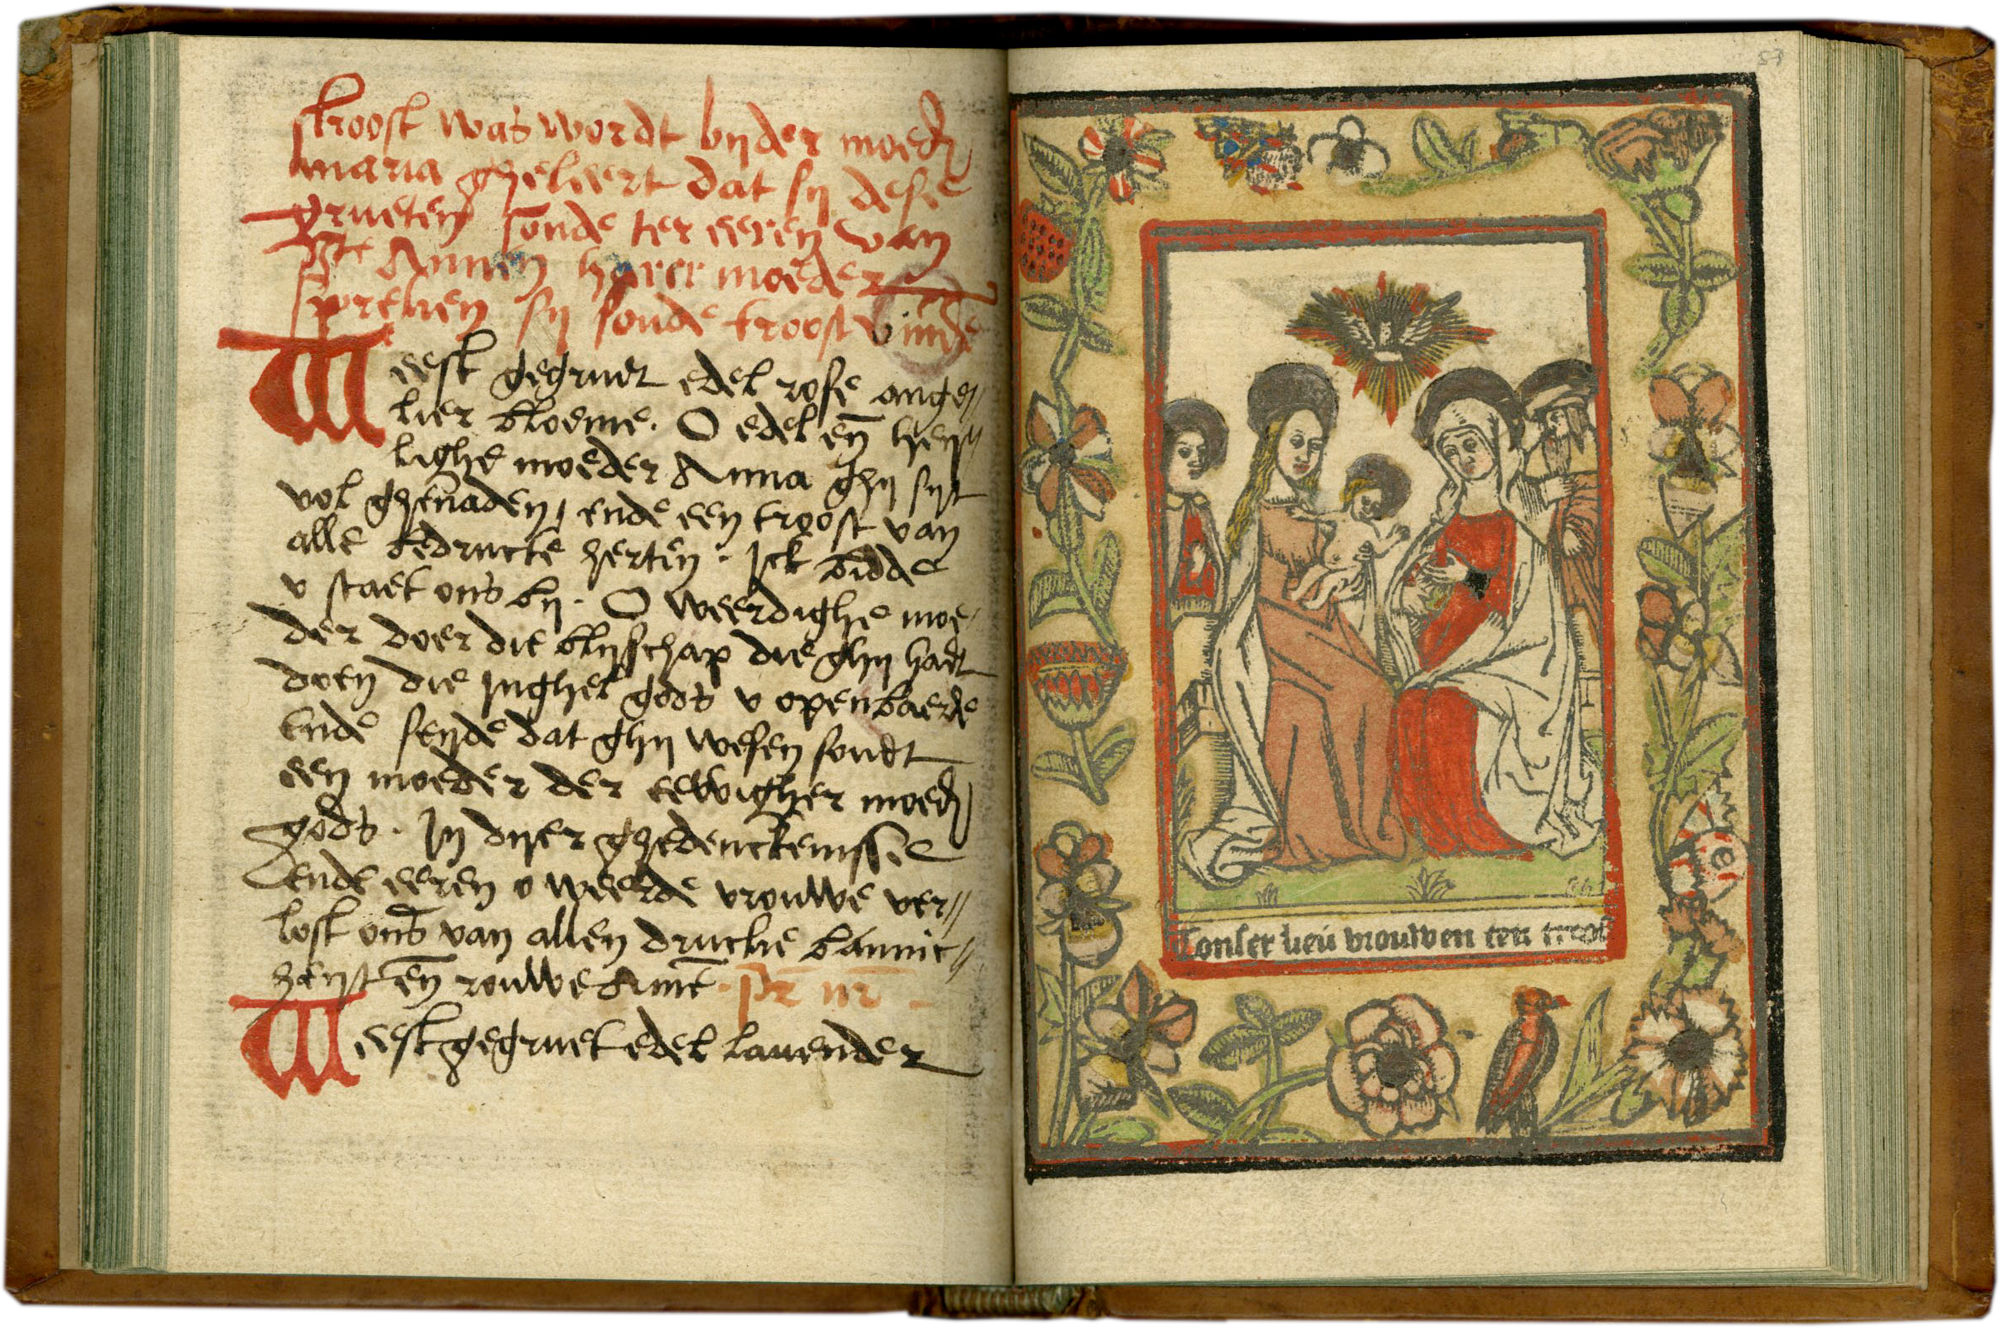 troost was wordt bijder moed͛
maria gheleert dat sij dese
grueten soude ter eeren van
Ste Annen harer moeder
spreken sij soude troost vinde
Weest gegruet edel rose ange//
lier bloeme. O edel en̄ heij//
lighe moeder Anna ghij sijt
vol ghenaden, ende een troost van
alle bedructe herten. Ick bidde
v staet ons bij. O weerdighe moe/
der doer die blijschap die ghij hadt
doen die Inghel gods v openbaerde
Ende seijde dat ghij wesen soudt
een moeder der eewigher moed͛
gods. In dijer ghedenckenisse
ende eeren o weerde vrouwe ver//
lost ons van allen drucke
en̄ rouwe Amē. pr nr
Weest gegruet edel lauender
Tonser lieū vrouwen ten troost
57